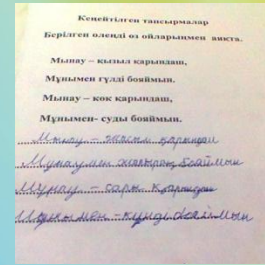 Кеңейтілген тапсырмалар
Берілген өлеңді өз ойларыңмен аяқта.
Мынау – қызыл қарындаш,
Мұнымен гүлді бояймын.
Мынау – көк қарындаш,
Мұнымен- суды бояймын.
Мынау – жасыл қарындаш
Мұнымен жапырақ бояймын
Мұнау – сары қарындаш
Мұнымен - күнді бояймын